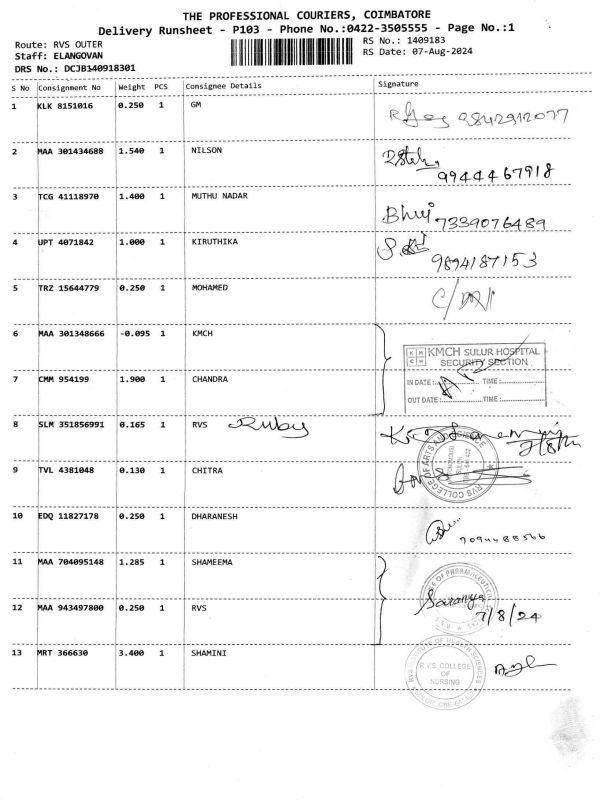 THE PROFESSIONAL COURIERS, COIMBATORE
Delivery Runsheet - P103 - Phone No.:0422-3505555 - Page No.:1
Route: RVS OUTER
RS No.: 1409183
Staff: ELANGOVAN
RS Date: 07-Aug-2024
DRS No.: DCJB140918301
S No Consignment No Weight PCS Consignee Details Signature
1 KLK 8151016 0.250 1 GM
9842912077
2 MAA 301434688 1.540 1 NILSON
9944467918
3 TCG 41118970 1.400 1 MUTHU NADAR
Bhuj 7339076489
4 UPT 4071842 1.000 1 KIRUTHIKA
9894187153
5 TRZ 15644779 0.250 1 MOHAMED
6 MAA 301348666 -0.095 1 KMCH
KMCH SULUR HOSPITAL
SECURITY SECTION
7 CMM 954199 1.900 1 CHANDRA
IN DATE: TIME:
OUT DATE: TIME:
8 SLM 351856991 0.165 1 RVS Ruby
RVS COLLEGE OF ARTS & SCIENCE
9 TVL 4381048 0.130 1 CHITRA
10 EDQ 11827178 0.250 1 DHARANESH
7094488566
11 MAA 704095148 1.285 1 SHAMEEMA
12 MAA 943497800 0.250 1 RVS
Saranya
7/8/24
13 MRT 366630 3.400 1 SHAMINI
RVS INSTITUTE OF HEALTH SCIENCES
R.V.S. COLLEGE
OF
NURSING